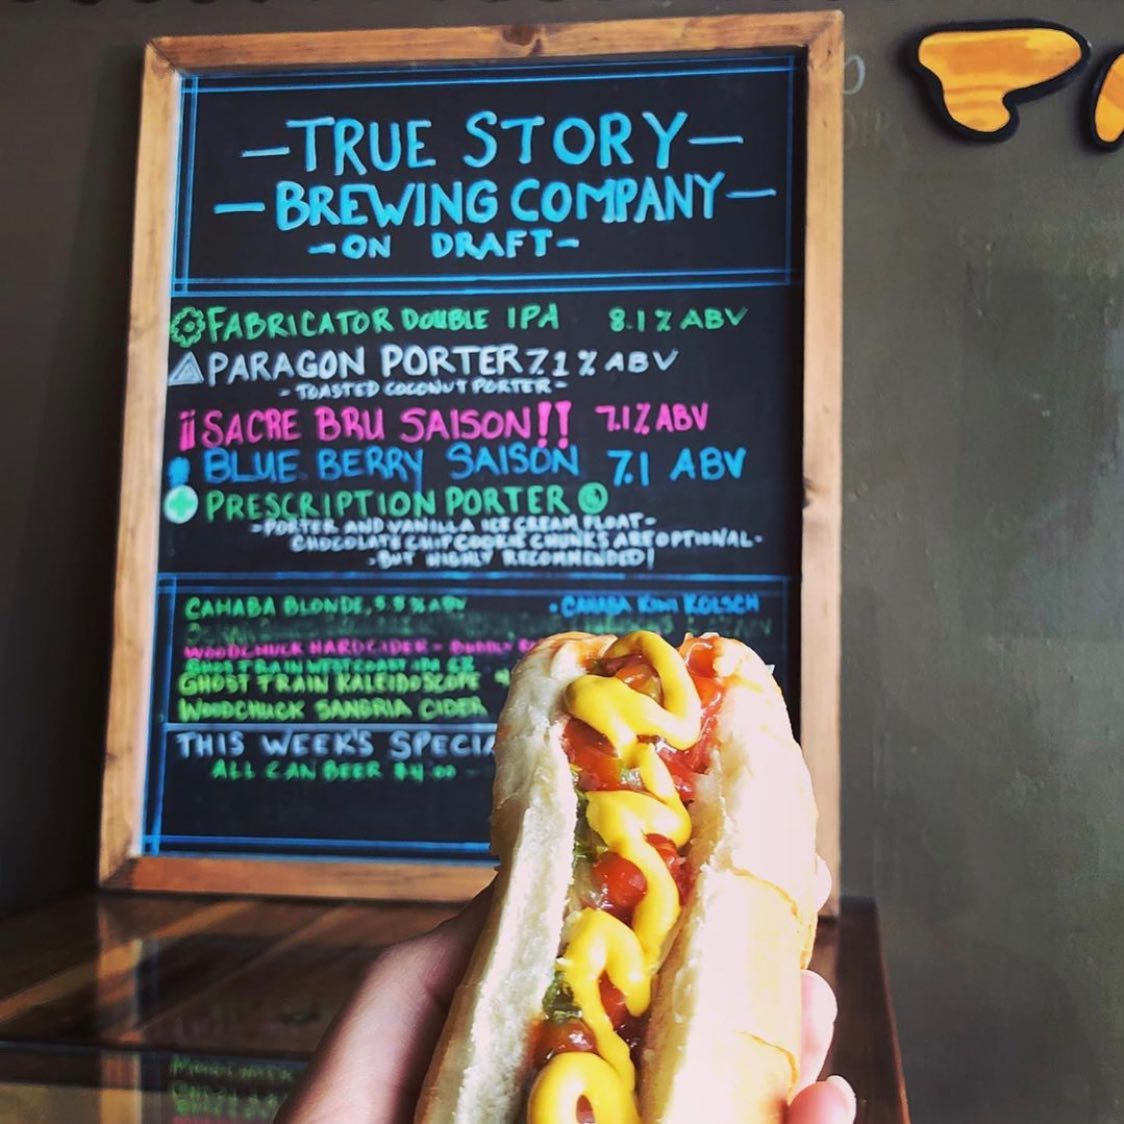 —TRUE STORY—
—BREWING COMPANY—
-ON DRAFT-
FABRICATOR DOUBLE IPA 8.1% ABV
PARAGON PORTER 7.1% ABV
-TOASTED COCONUT PORTER-
¡¡SACRE BRU SAISON!! 7.1% ABV
BLUE BERRY SAISON 7.1 ABV
PRESCRIPTION PORTER
-PORTER AND VANILLA ICE CREAM FLOAT-
CHOCOLATE CHIP COOKIE CHUNKS ARE OPTIONAL-
-BUT HIGHLY RECOMMENDED!
CAHABA BLONDE, 5.5% ABV
• CAHABA KIWI KOLSCH
WOODCHUCK HARD CIDER -
GHOST TRAIN WEST COAST IPA
GHOST TRAIN KALEIDOSCOPE
WOODCHUCK SANGRIA CIDER
THIS WEEK'S SPECIA
ALL CAN BEER $4.00